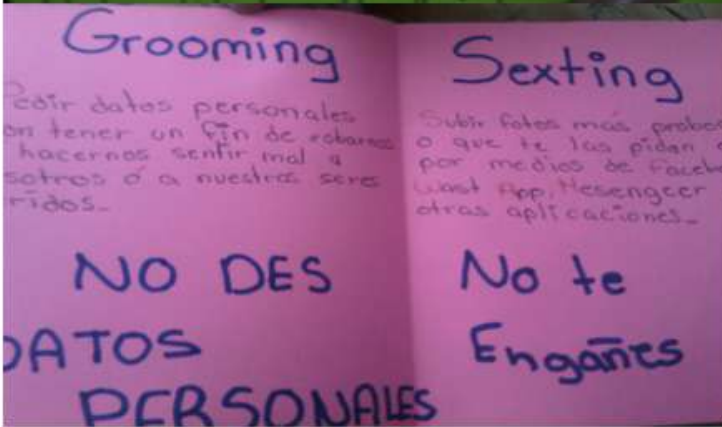 Grooming
Pedir datos personales
con tener un fin de robarnos
hacernos sentir mal a
nosotros ó a nuestros seres
queridos.
NO DES
DATOS
PERSONALES
Sexting
Subir fotos mas
o que te las pidan
por medios de Facebook
Wast App, Mesengeer
otras aplicaciones.
No te
Engañes